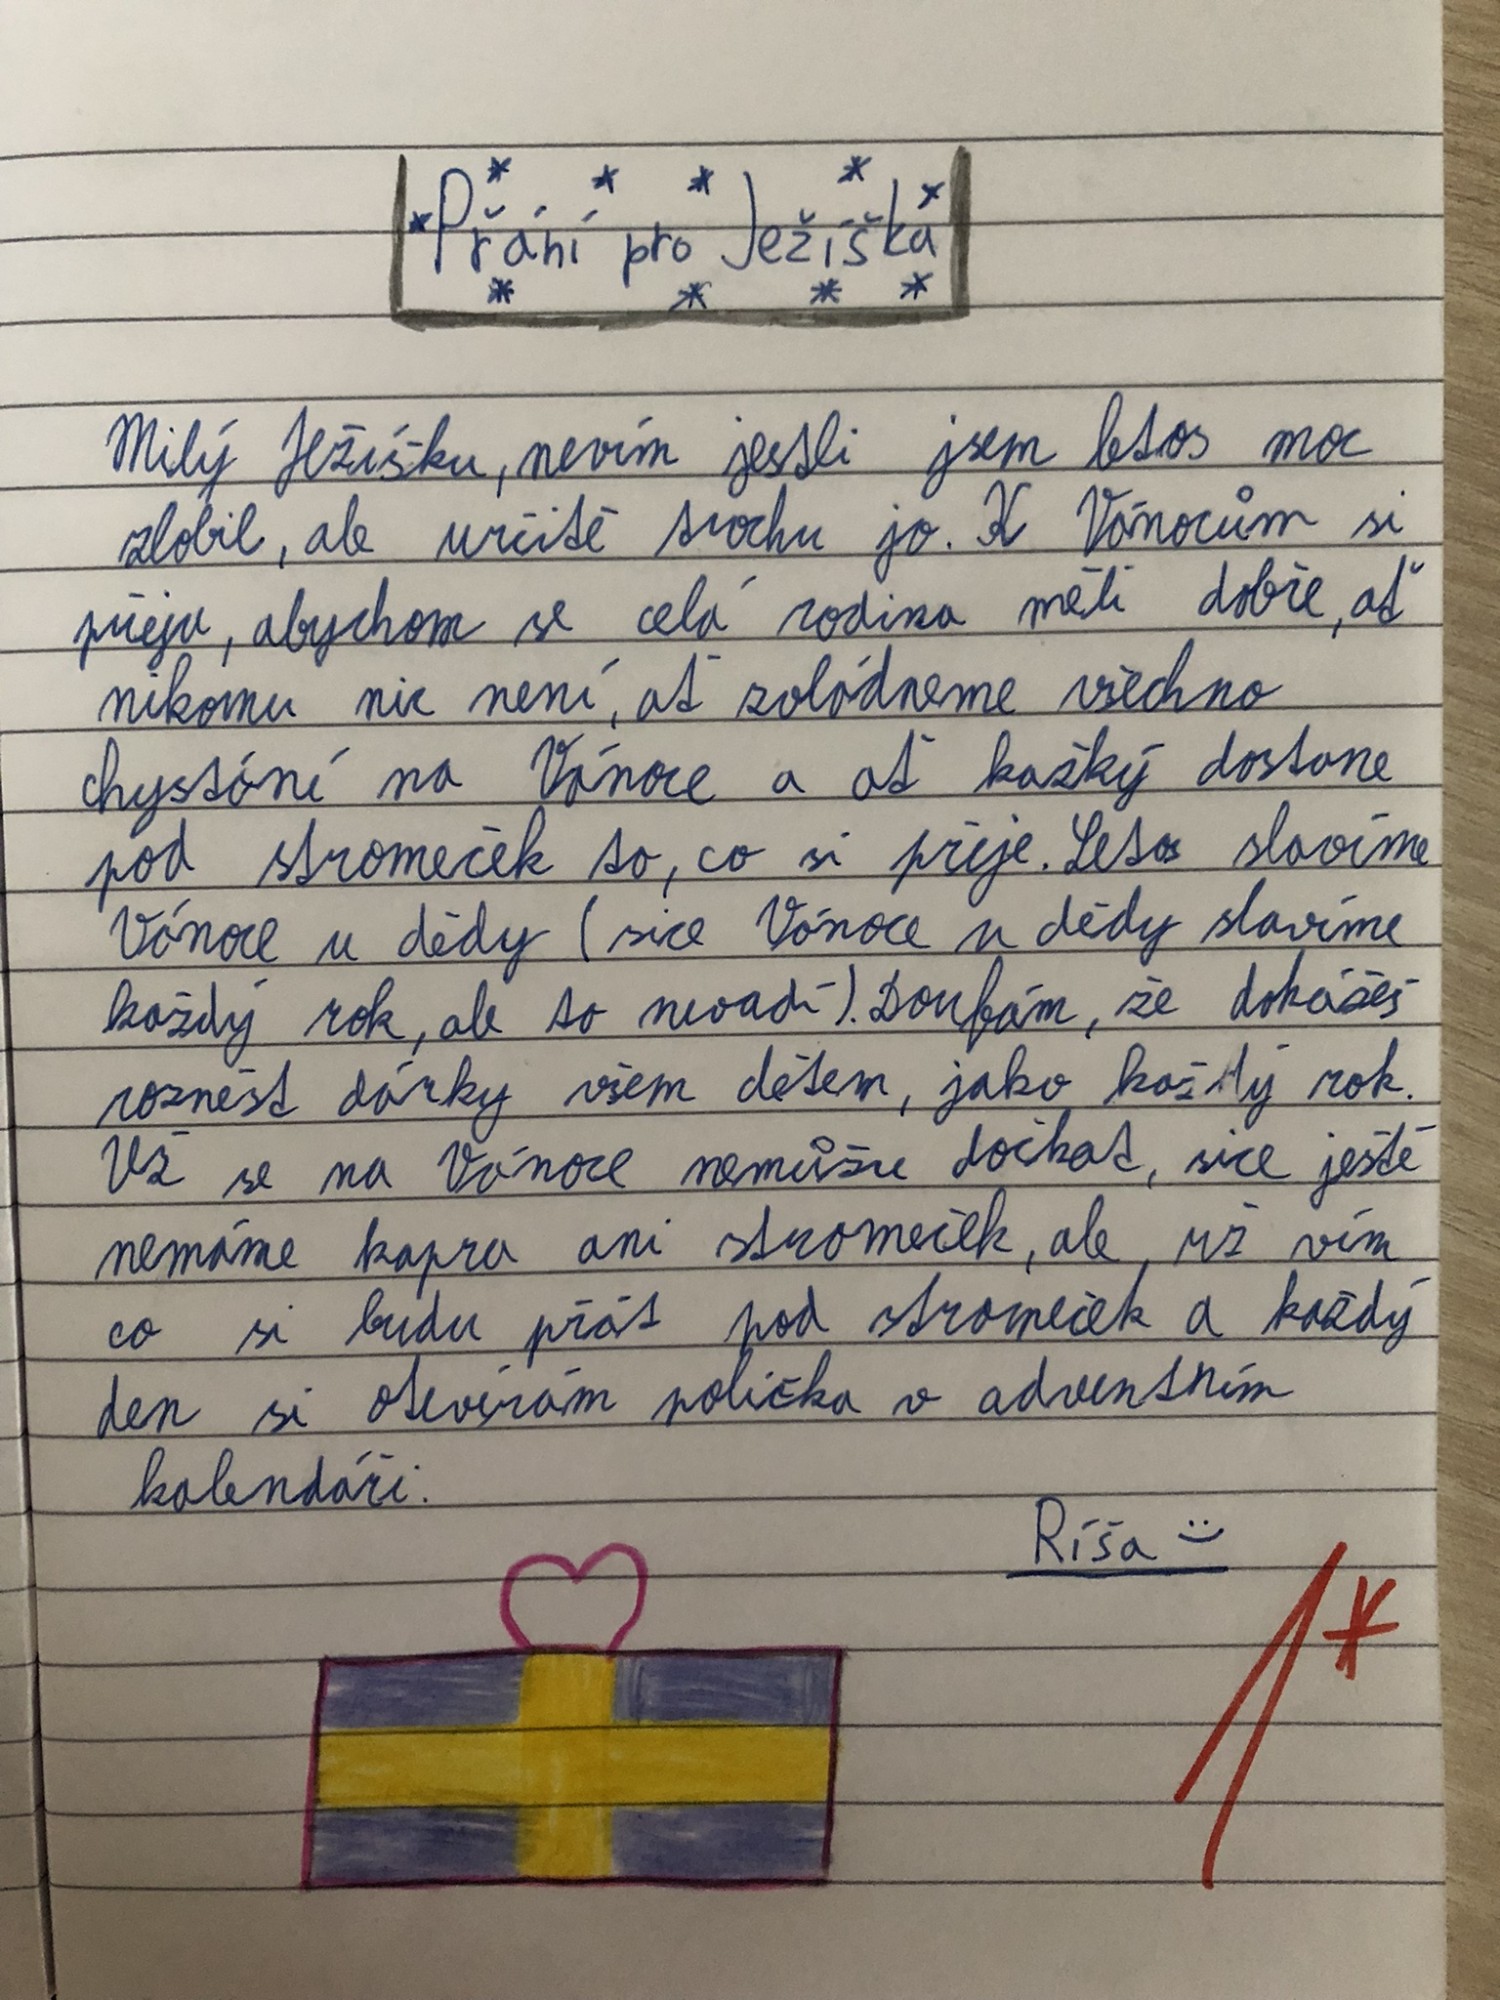 Přání pro Ježíška
Milý Ježíšku, nevím jestli jsem letos moc
zlobil, ale určitě trochu jo. K Vánocům si
přeju, abychom se celá rodina měli dobře, ať
nikomu nic není, ať zvládneme všechno
chystání na Vánoce a ať kažký dostane
pod stromeček to, co si přeje. Letos slavíme
Vánoce u dědy (sice Vánoce u dědy slavíme
každý rok, ale to nevadí). Doufám, že dokážeš
roznést dárky všem dětem, jako každý rok.
Už se na Vánoce nemůžu dočkat, sice ještě
nemáme kapra ani stromeček, ale už vím
co si budu přát pod stromeček a každý
den si otevírám políčka v adventním
kalendáři.
Ríša
1*